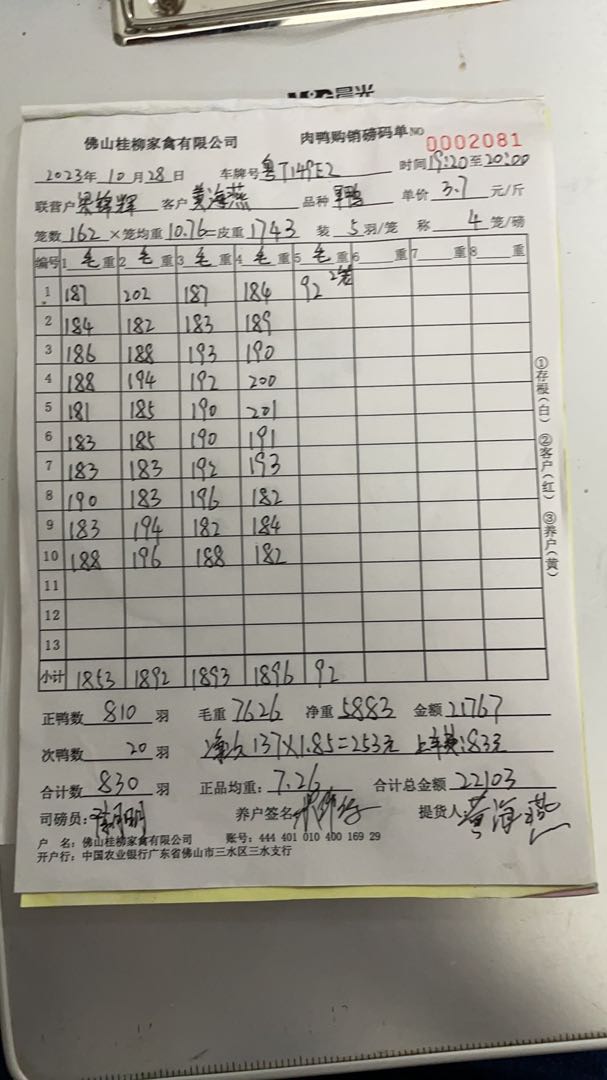 M&G晨光
佛山桂柳家禽有限公司 肉鸭购销磅码单NO 0002081
2023年10月28日 车牌号粤T149E2 时间19:20至20:00
联营户梁锦辉 客户黄海燕 品种 单价3.7元/斤
笼数162×笼均重10.76=皮重1743 装5羽/笼 称4笼/磅
编号 1毛重 2毛重 3毛重 4毛重 5毛重 6重 7重 8重
1 187 202 187 184 92 2笼
2 184 182 183 189
3 186 188 193 190
4 188 194 192 200
5 181 185 190 201
6 183 185 190 191
7 183 183 192 193
8 190 183 196 182
9 183 194 182 184
10 188 196 188 182
11
12
13
小计 1853 1892 1893 1896 92
正鸭数810羽 毛重7626 净重5883 金额21767
次鸭数20羽 137×1.85=253元 上车费:83元
合计数830羽 正品均重:7.26 合计总金额22103
司磅员: 养户签名 提货人黄海燕
户 名:佛山桂柳家禽有限公司 账号:444 401 010 400 169 29
开户行:中国农业银行广东省佛山市三水区三水支行
①存根(白) ②客户(红) ③养户(黄)